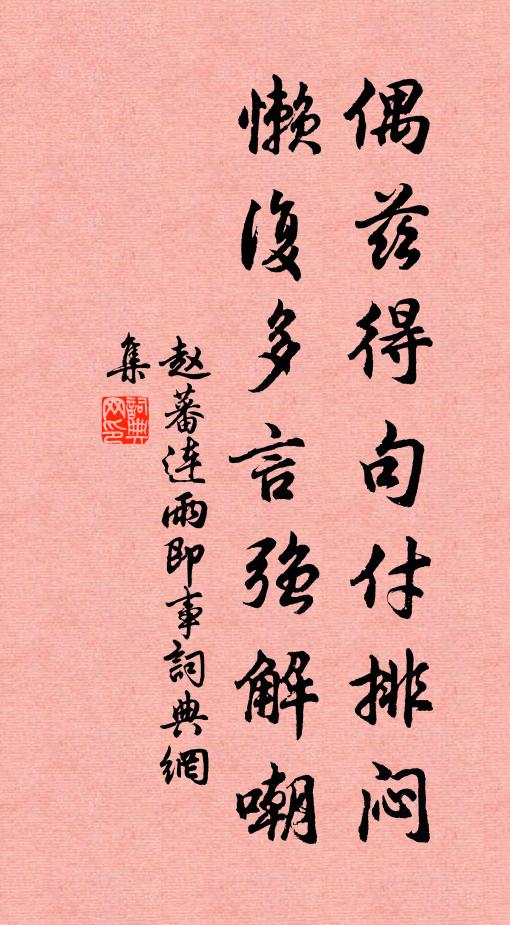 偶兹得句付排闷
懒复多言强解嘲
赵蕃连雨即事词典網
集
詞典
网印